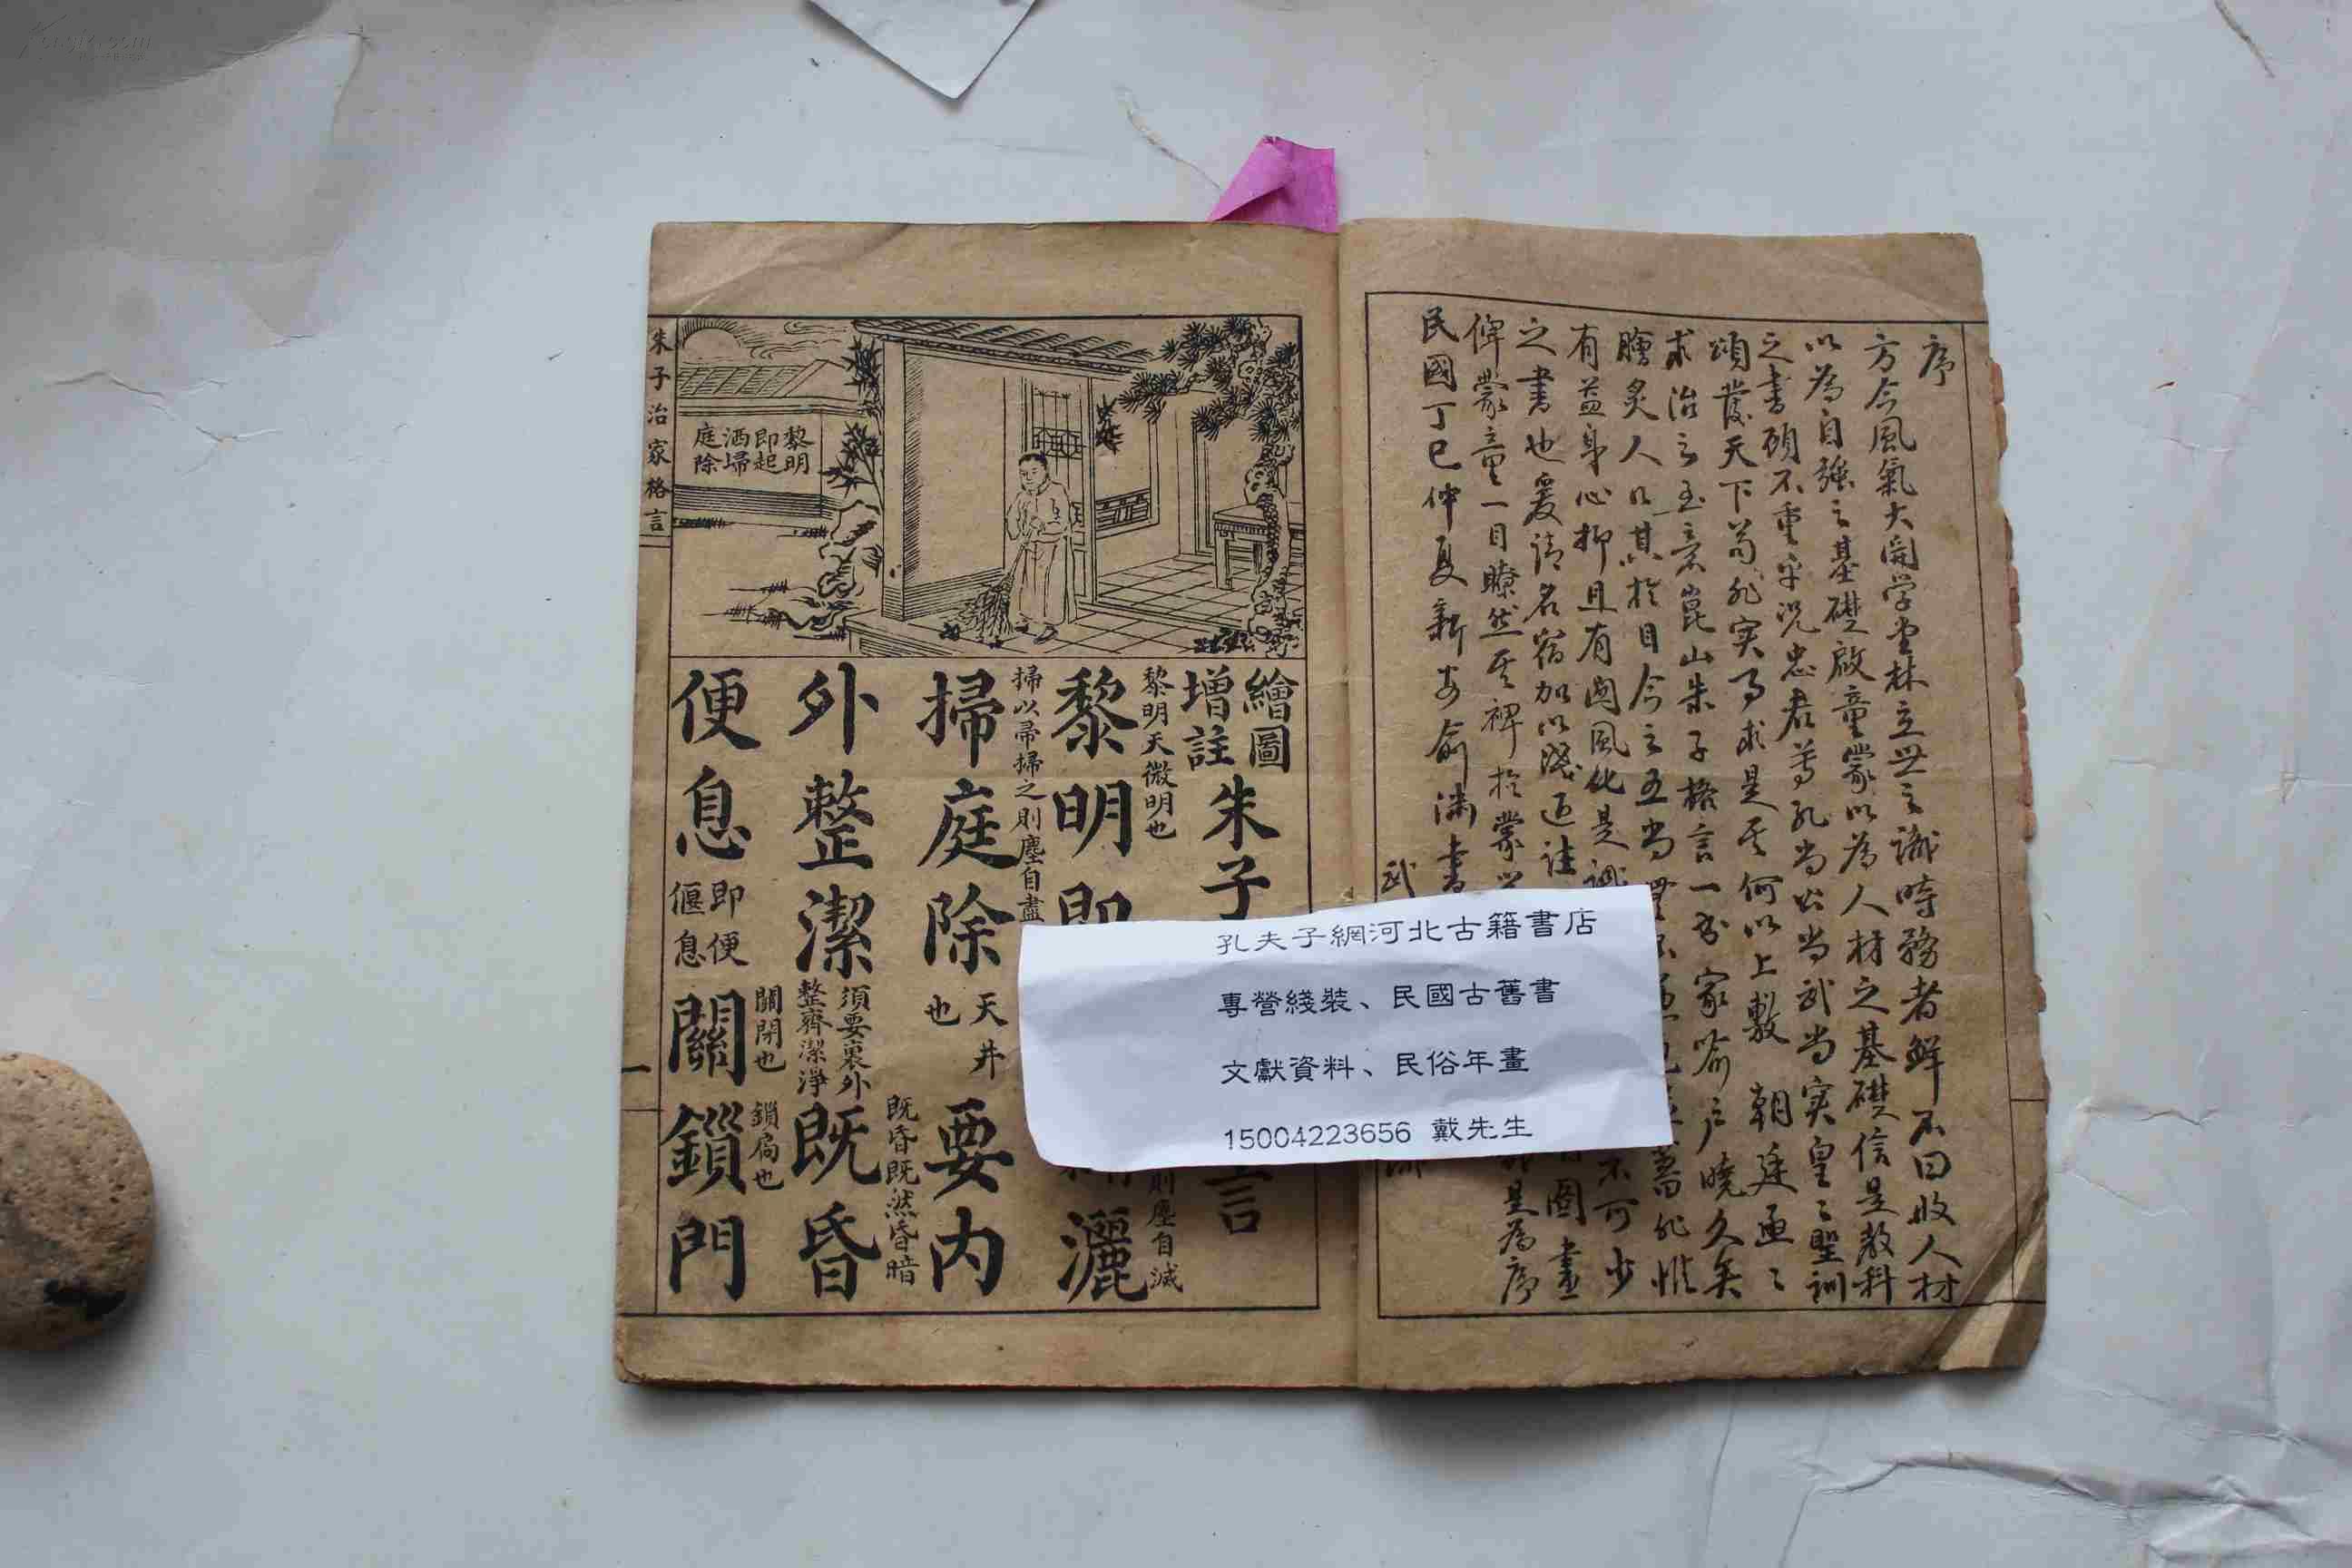 序
方今風氣大開学堂林立世之識時務者鮮不曰收人材
以為自強之基礎啟童蒙以為人材之基礎信是教科
之書顧不重乎况忠君尊孔尚公尚武尚实皇々聖訓
頌發天下苟非实事求是其何以上敷 朝廷亟々
求治之至意崑山朱子格言一书家喻户曉久矣
膾炙人口其於目今之五尚
有益身心抑且有関風化是
不可少
之書也爰請名宿加以淺近註
圖畫
俾蒙童一目瞭然其裨於蒙学
是為序
民國丁巳仲夏新安俞 書
繪圖
增註
朱子
言
黎明天微明也
則塵自滅
黎明即
灑
掃以帚掃之則塵自盡
掃庭除
天井
也
要內
既昏既然昏暗
外整潔
須要裏外
整齊潔淨
既昏
關閉也
鎖扃也
便息
即便
偃息
關鎖門
黎明
即起
洒埽
庭除
朱子治家格言
一
孔夫子網河北古籍書店
專營綫裝、民國古舊書
文獻資料、民俗年畫
15004223656 戴先生